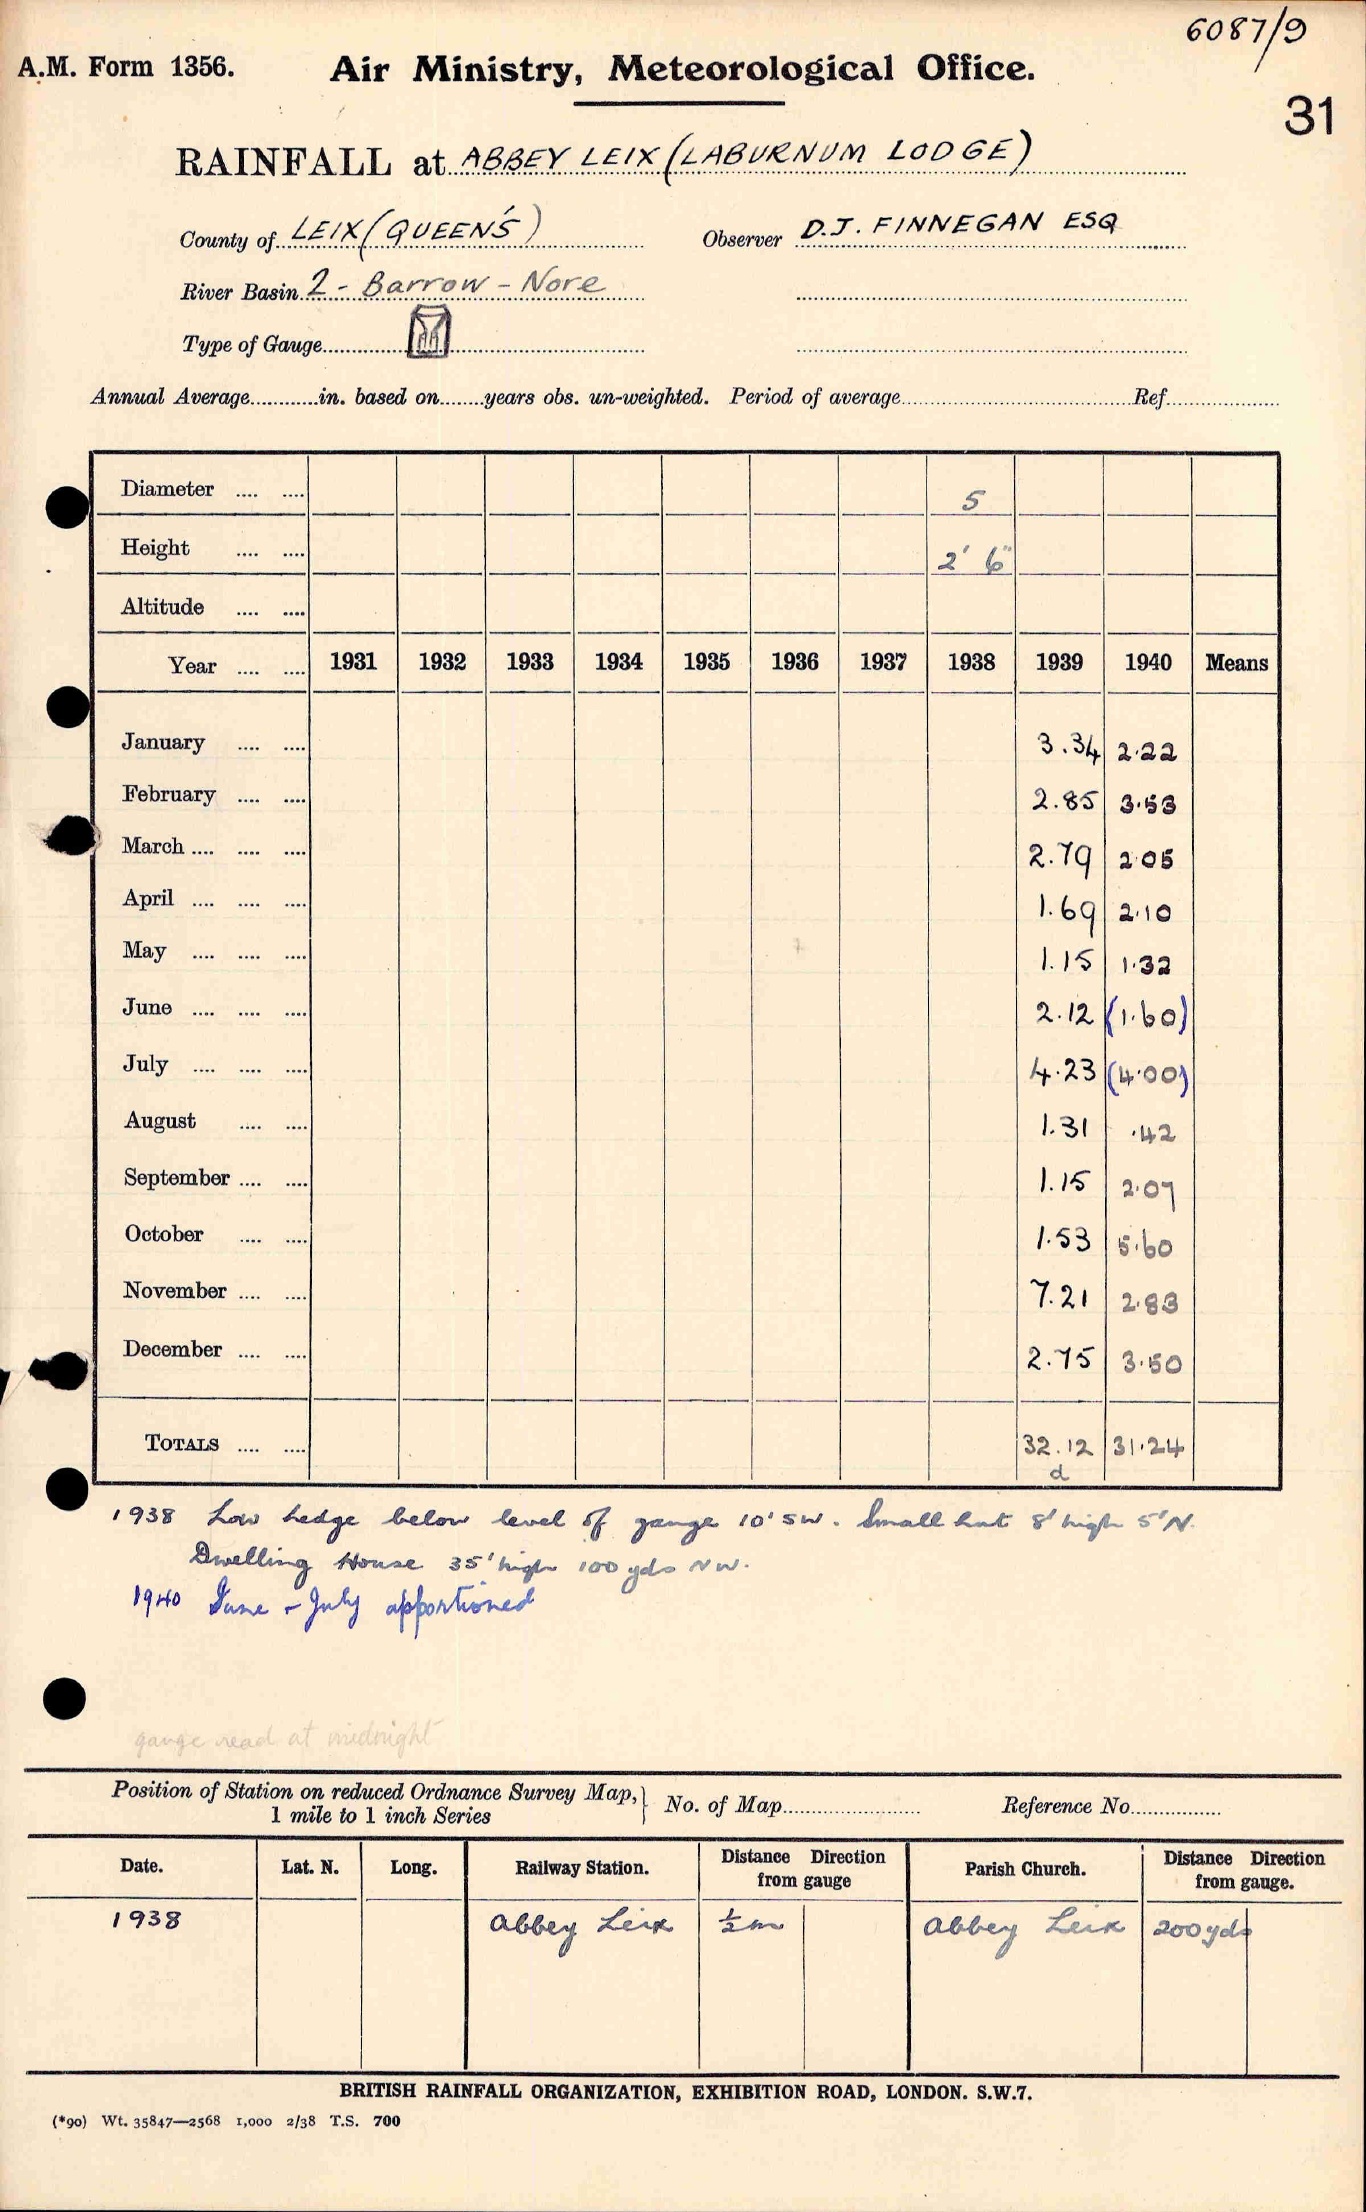 6087/9
A.M. Form 1356. Air Ministry, Meteorological Office.
31
RAINFALL at ABBEY LEIX (LABURNUM LODGE)
County of LEIX (QUEEN'S) Observer D.J. FINNEGAN ESQ
River Basin 2 - Barrow - Nore
Type of Gauge
Annual Average in. based on years obs. un-weighted. Period of average Ref
Diameter .... .... 5
Height .... .... 2' 6"
Altitude .... ....
Year .... .... 1931 1932 1933 1934 1935 1936 1937 1938 1939 1940 Means
January .... .... 3.34 2.22
February .... .... 2.85 3.53
March .... .... .... 2.79 2.05
April .... .... .... 1.69 2.10
May .... .... .... 1.15 1.32
June .... .... .... 2.12 (1.60)
July .... .... .... 4.23 (4.00)
August .... .... 1.31 .42
September .... .... 1.15 2.07
October .... .... 1.53 5.60
November .... .... 7.21 2.83
December .... .... 2.75 3.50
TOTALS .... .... 32.12 31.24
d
1938 Low hedge below level of gauge 10' SW. Small hut 8' high 5' N.
Dwelling House 35' high 100 yds NW.
1940 June - July apportioned
gauge read at midnight
Position of Station on reduced Ordnance Survey Map, } No. of Map Reference No.
1 mile to 1 inch Series
Date. Lat. N. Long. Railway Station. Distance Direction from gauge Parish Church. Distance Direction from gauge.
1938 Abbey Leix ½ m Abbey Leix 200 yds
BRITISH RAINFALL ORGANIZATION, EXHIBITION ROAD, LONDON. S.W.7.
(*90) Wt. 35847—2568 1,000 2/38 T.S. 700